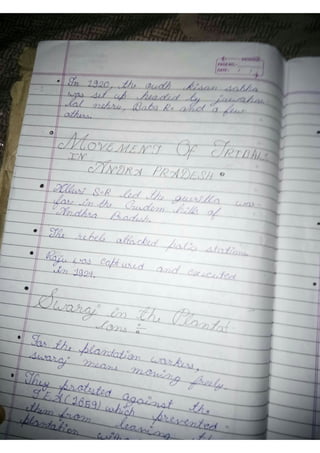 PAGE NO.:
DATE: / /
• In 1920, the oudh kisan sabha
was set up headed by jawahar
lal nehru, Baba R. and a few
others.
• MOVEMENT OF TRIBALS
IN
ANDRA PRADESH •
• Alluri S.R led the guerilla war-
fare in the Gudem hills of
Andhra Pradesh.
• The rebels attacked police stations
• Raju was captured and executed
in 1924.
• Swaraj in the Planta
tions :-
• For the plantation workers,
swaraj means moving freely.
• They protested against the
I.E.A (1859) which prevented
them from leaving the
plantation